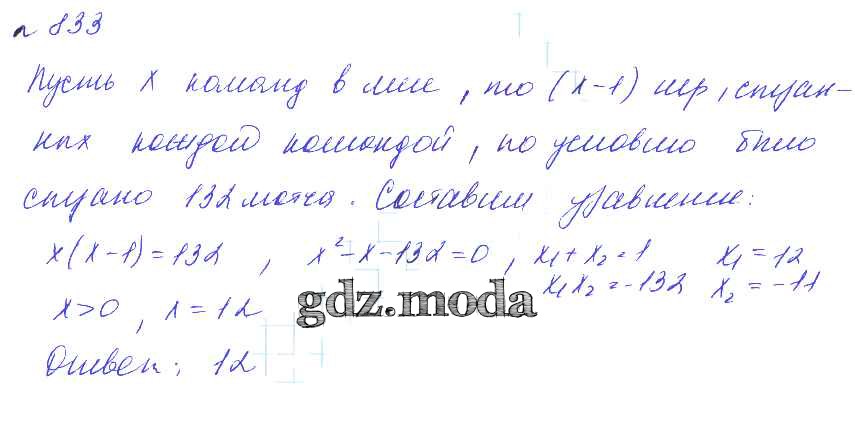 № 833
Пусть x команд в лиге, то (x-1) игр, сыгран-
ных каждой командой, по условию было
сыграно 132 матча. Составим уравнение:
x(x-1)=132, x²-x-132=0, x₁+x₂=1 x₁=12
x₁x₂=-132 x₂=-11
x>0, x=12
gdz.moda
Ответ: 12